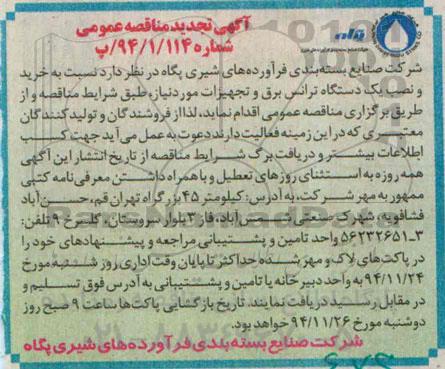 آگهی تجدید مناقصه عمومی
شماره ۹۴/۱/۱۱۴/پ
پگاه
شرکت صنایع بسته‌بندی فرآورده‌های شیری پگاه در نظر دارد نسبت به خرید
و نصب یک دستگاه ترانس برق و تجهیزات موردنیاز، طبق شرایط مناقصه و از
طریق برگزاری مناقصه عمومی اقدام نماید، لذا از فروشندگان و تولیدکنندگان
معتبری که در این زمینه فعالیت دارند دعوت به عمل می‌آید جهت کسب
اطلاعات بیشتر و دریافت برگ شرایط مناقصه از تاریخ انتشار این آگهی
همه روزه به استثنای روزهای تعطیل و با همراه داشتن معرفی‌نامه کتبی
ممهور به مهر شرکت، به آدرس: کیلومتر ۴۵ بزرگراه تهران قم، حسن‌آباد
فشافویه، شهرک صنعتی شمس‌آباد، فاز ۳ بلوار سروستان، گلسرخ ۹ تلفن:
۳-۵۶۲۳۲۶۵۱ واحد تامین و پشتیبانی مراجعه و پیشنهادهای خود را
در پاکت‌های لاک و مهر شده حداکثر تا پایان وقت اداری روز شنبه مورخ
۹۴/۱۱/۲۴ به واحد دبیرخانه یا تامین و پشتیبانی به آدرس فوق تسلیم و
در مقابل رسید دریافت نمایند. تاریخ بازگشایی پاکت‌ها ساعت ۹ صبح روز
دوشنبه مورخ ۹۴/۱۱/۲۶ خواهد بود.
شرکت صنایع بسته‌بندی فرآورده‌های شیری پگاه